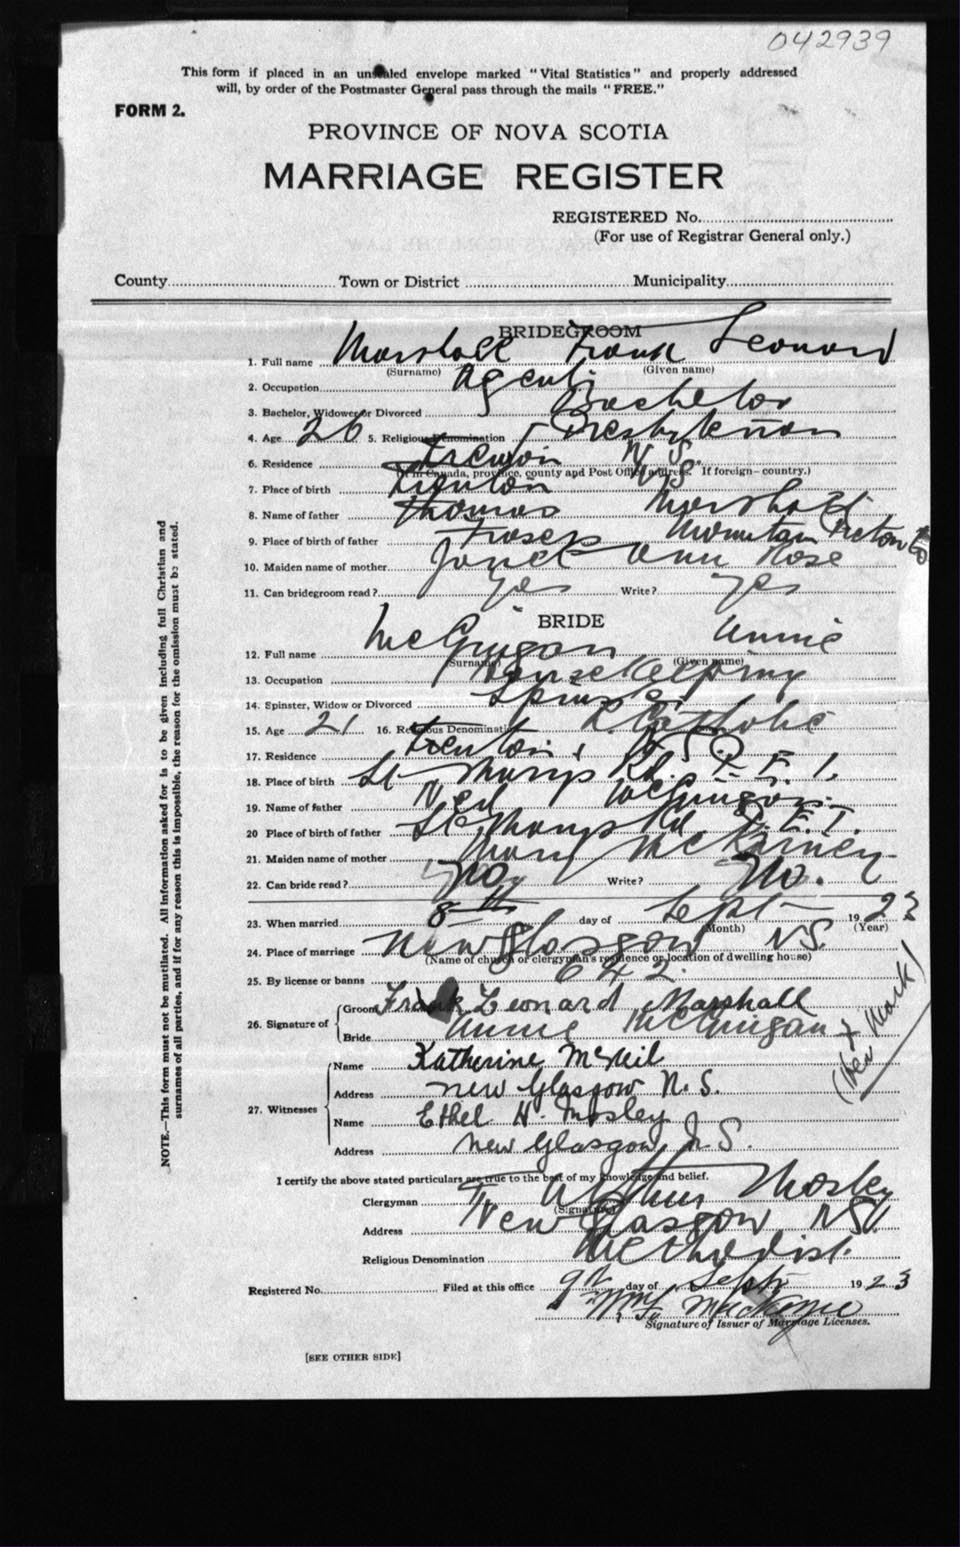 042939
This form if placed in an unsealed envelope marked "Vital Statistics" and properly addressed
will, by order of the Postmaster General pass through the mails "FREE."
FORM 2.
PROVINCE OF NOVA SCOTIA
MARRIAGE REGISTER
REGISTERED No.
(For use of Registrar General only.)
County Town or District Municipality
BRIDEGROOM
1. Full name Marshall Frank Leonard
(Surname) (Given name)
2. Occupation Agent
3. Bachelor, Widower or Divorced Bachelor
4. Age 26 5. Religious Denomination Presbyterian
6. Residence Trenton N S
(If in Canada, province, county and Post Office address. If foreign—country.)
7. Place of birth Trenton N S
8. Name of father Thomas Marshall
9. Place of birth of father Frasers Mountain Pictou Co
10. Maiden name of mother Janet Ann Rose
11. Can bridegroom read? yes Write? yes
BRIDE
12. Full name McGuigan Annie
(Surname) (Given name)
13. Occupation Housekeeping
14. Spinster, Widow or Divorced Spinster
15. Age 21 16. Religious Denomination R. Catholic
17. Residence Trenton N S
18. Place of birth St Marys Rd P. E. I.
19. Name of father Ned McGuigan
20 Place of birth of father St Marys Rd P. E. I.
21. Maiden name of mother Mary McKarney
22. Can bride read? No Write? No.
23. When married 8th day of Sept 1923
(Month) (Year)
24. Place of marriage New Glasgow NS.
(Name of church or clergyman's residence or location of dwelling house)
25. By license or banns 642.
26. Signature of Groom Frank Leonard Marshall
Bride Annie McGuigan X
(her mark)
27. Witnesses Name Katherine McNeil
Address New Glasgow N. S.
Name Ethel H. Mosley
Address New Glasgow, N. S.
I certify the above stated particulars are true to the best of my knowledge and belief.
Clergyman Arthur Mosley
(Signature)
Address New Glasgow NS.
Religious Denomination Methodist.
Registered No. Filed at this office 9th day of Sept 1923
MacKenzie
Signature of Issuer of Marriage Licenses.
[SEE OTHER SIDE]
NOTE.—This form must not be mutilated. All information asked for is to be given including full Christian and
surnames of all parties, and if for any reason this is impossible, the reason for the omission must be stated.